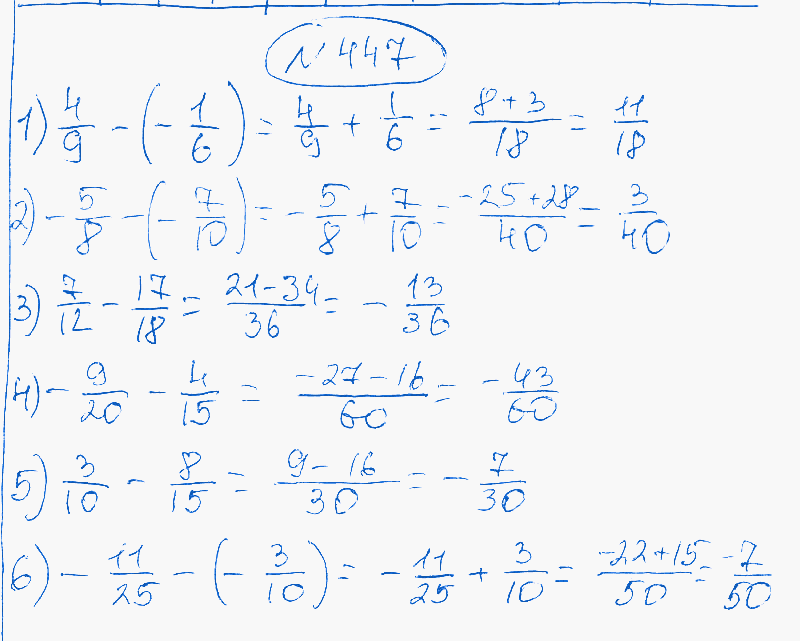 №447
1) 4/9 - (- 1/6) = 4/9 + 1/6 = (8+3)/18 = 11/18
2) - 5/8 - (- 7/10) = - 5/8 + 7/10 = (-25+28)/40 = 3/40
3) 7/12 - 17/18 = (21-34)/36 = - 13/36
4) - 9/20 - 4/15 = (-27-16)/60 = - 43/60
5) 3/10 - 8/15 = (9-16)/30 = - 7/30
6) - 11/25 - (- 3/10) = - 11/25 + 3/10 = (-22+15)/50 = -7/50